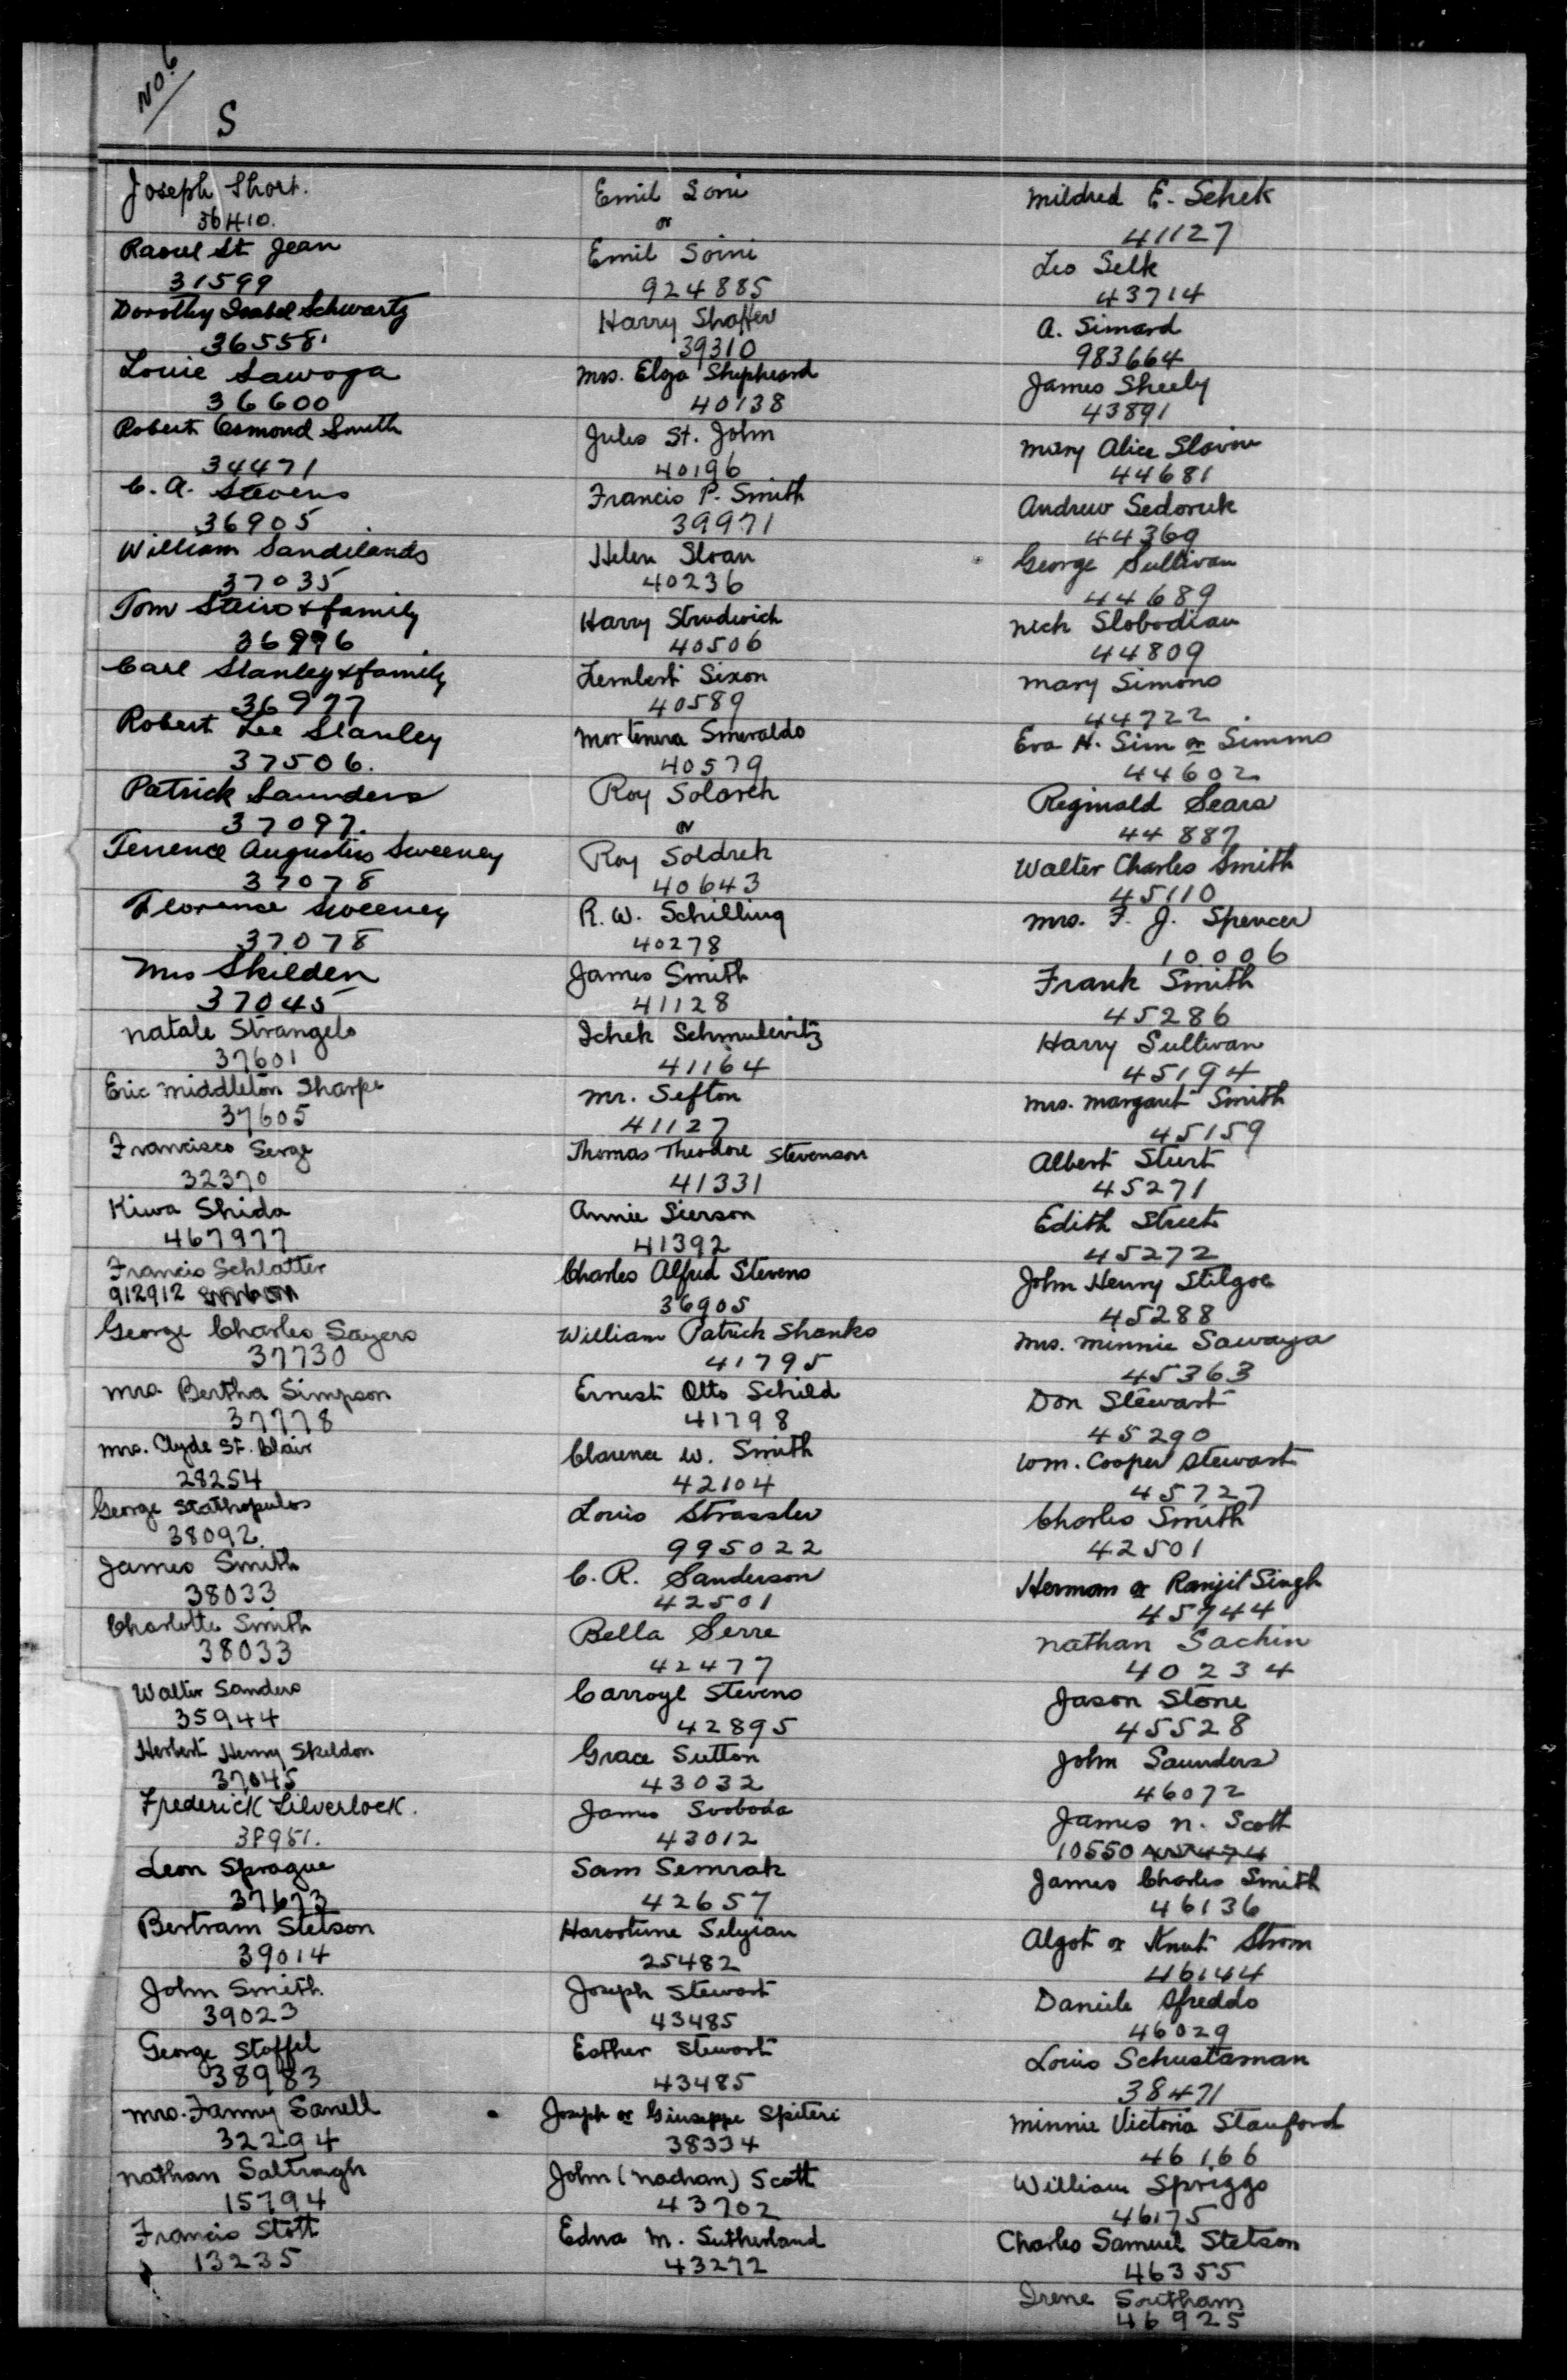 No. 6
S
Joseph Short.
36410.
Raoul St Jean
31599
Dorothy Isabel Schwartz
36558.
Louie Sawoga
36600
Robert Osmond Smith
34471
C. A. Stevens
36905
William Sandilands
37035
Tom Stairs & family
36996
Carl Stanley & family
36977
Robert Lee Stanley
37506.
Patrick Saunders
37097.
Terrence Augustus Sweeney
37078
Florence Sweeney
37078
Mrs Skilden
37045
Natale Strangelo
37601
Eric Middleton Sharpe
37605
Francisco Serge
32370
Kiwa Shida
467977
Francis Schlatter
912912
George Charles Sayers
37730
Mrs. Bertha Simpson
37778
Mrs. Clyde St. Clair
28254
George Stathopulos
38092.
James Smith
38033
Charlotte Smith
38033
Walter Sanders
35944
Herbert Henry Skeldon
37045
Frederick Silverlock.
38951.
Leon Sprague
37673
Bertram Stetson
39014
John Smith
39023
George Stoffel
38983
Mrs. Fanny Sanell
32294
Nathan Saltragh
15794
Francis Stott
13235
Emil Soni
or
Emil Soini
924885
Harry Shaffer
39310
Mrs. Elga Shipheard
40138
Jules St. John
40196
Francis P. Smith
39971
Helen Sloan
40236
Harry Strudwick
40506
Lembert Sixon
40589
Mortenera Smeraldo
40579
Roy Solarek
or
Roy Soldrek
40643
R. W. Schilling
40278
James Smith
41128
Ichek Schmulevitz
41164
Mr. Sefton
41127
Thomas Theodore Stevenson
41331
Annie Sierson
41392
Charles Alfred Stevens
36905
William Patrick Shanks
41795
Ernest Otto Schild
41798
Clarence W. Smith
42104
Louis Strassler
995022
C. R. Sanderson
42501
Bella Serre
42477
Carroyl Stevens
42895
Grace Sutton
43032
James Svoboda
43012
Sam Semrak
42657
Harootune Selyian
25482
Joseph Stewart
43485
Esther Stewart
43485
Joseph or Giuseppe Spiteri
38334
John (Nachan) Scott
43702
Edna M. Sutherland
43272
Mildred E. Schek
41127
Leo Selk
43714
A. Simard
983664
James Sheely
43891
Mary Alice Slavin
44681
Andrew Sedoruk
44369
George Sullivan
44689
Nick Slobodian
44809
Mary Simons
44722
Eva H. Sim or Simms
44602
Reginald Sears
44887
Walter Charles Smith
45110
Mrs. F. J. Spencer
10006
Frank Smith
45286
Harry Sullivan
45194
Mrs. Margaret Smith
45159
Albert Sturt
45271
Edith Street
45272
John Henry Stilgoe
45288
Mrs. Minnie Sawaya
45363
Don Stewart
45290
Wm. Cooper Stewart
45727
Charles Smith
42501
Herman or Ranjit Singh
45744
Nathan Sachin
40234
Jason Stone
45528
John Saunders
46072
James N. Scott
10550
James Charles Smith
46136
Algot or Knut Strom
46144
Daniele Sfreddo
46029
Louis Schustaman
38471
Minnie Victoria Stanford
46166
William Spriggs
46175
Charles Samuel Stetson
46355
Irene Southam
46925